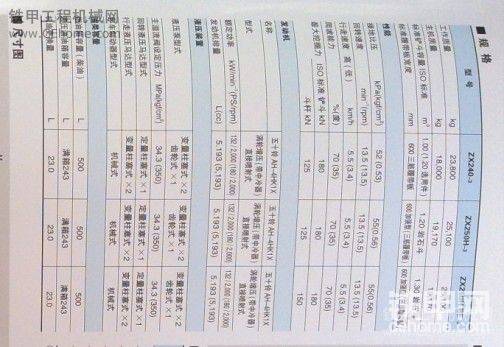 铁甲工程机械网
■ 规格
型号 ZX240-3 ZX250H-3
工作质量 kg 23,800 25,100
主机质量 kg 18,000 19,170
标准铲斗容量 ISO 标准 m³ 1.00 (1.20 选用件) 1.20 岩石斗 1.30 岩
标准履带板宽度 mm 600 三筋履带板 600 加强型(三筋履带板) 600 加强
性能
接地比压 kPa(kgf/cm²) 52 (0.53) 55(0.56) 55(0.56)
回转速度 min⁻¹(rpm) 13.5 (13.5) 13.5 (13.5) 13.5 (13.5)
行走速度 高(低) km/h 5.5 (3.4) 5.5 (3.4) 5.5 (3.4)
爬坡能力 %(度) 70 (35) 70 (35) 70 (35)
最大挖掘力 ISO 标准 铲斗 kN 180 180 180
斗杆 kN 125 125 150
发动机
名称 五十铃 AH-4HK1X 五十铃 AH-4HK1X 五十铃 AH-4HK1X
型式 涡轮增压(带中冷器) 涡轮增压(带中冷器) 涡轮增压(带中冷器)
直接喷射式 直接喷射式 直接喷射式
额定功率 kW/min⁻¹(PS/rpm) 132 / 2,000 (180 / 2,000) 132 / 2,000 (180 / 2,000) 132 / 2,000 (180 / 2,000)
发动机排量 L(cc) 5.193 (5,193) 5.193 (5,193) 5.193 (5,193)
液压装置
液压泵型式 变量柱塞式 ×2 变量柱塞式 ×2 变量柱塞式 ×2
齿轮式 ×1 齿轮式 ×1 齿轮式 ×1
主溢流阀设定压力 MPa(kgf/cm²) 34.3 (350) 34.3 (350) 34.3 (350)
回转液压马达型式 定量柱塞式 ×1 定量柱塞式 ×1 定量柱塞式 ×1
行走液压马达型式 变量柱塞式 ×2 变量柱塞式 ×2 变量柱塞式 ×2
制动器型式 机械式 机械式 机械式
油类容量
燃油箱容量(柴油) L 500 500 500
液压油箱容量 L 满箱243 满箱243 满箱243
L 23.0 23.0 23.0
■ 尺寸图
铁甲网
cehome.com